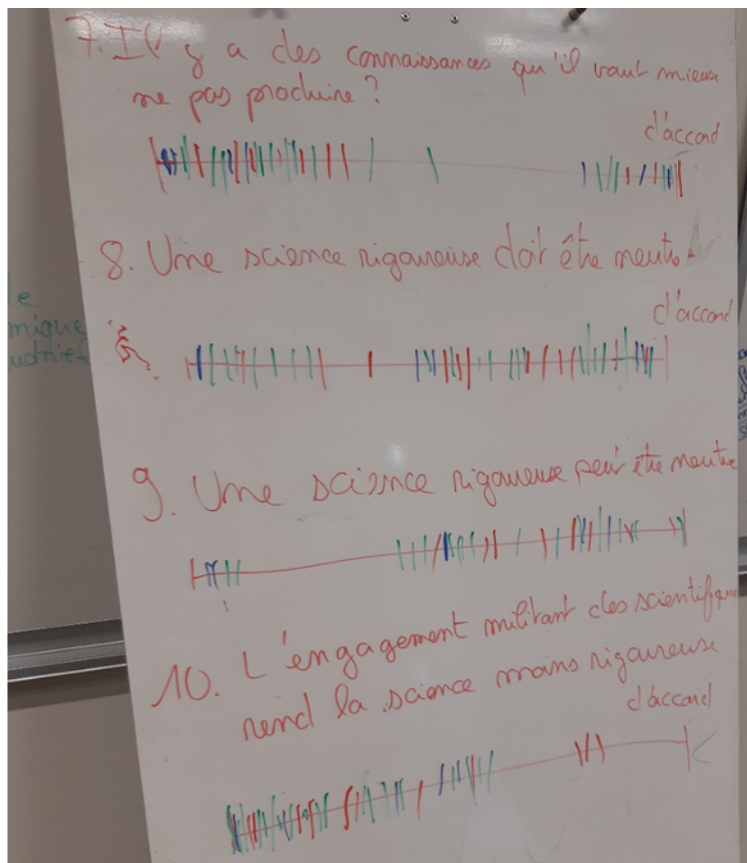 7. Il y a des connaissances qu'il vaut mieux
ne pas produire ?
d'accord
8. Une science rigoureuse doit être neutre
d'accord
9. Une science rigoureuse peut être neutre
10. L'engagement militant des scientifiques
rend la science moins rigoureuse
d'accord